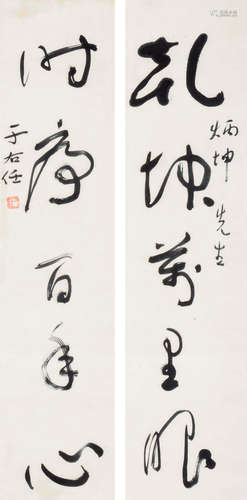 乾坤萬里眼
炳坤先生
时序百年心
于右任